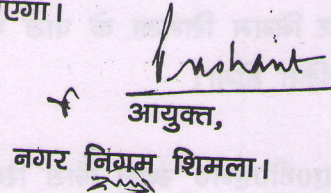 एगा।
Prashant
आयुक्त,
नगर निगम शिमला।